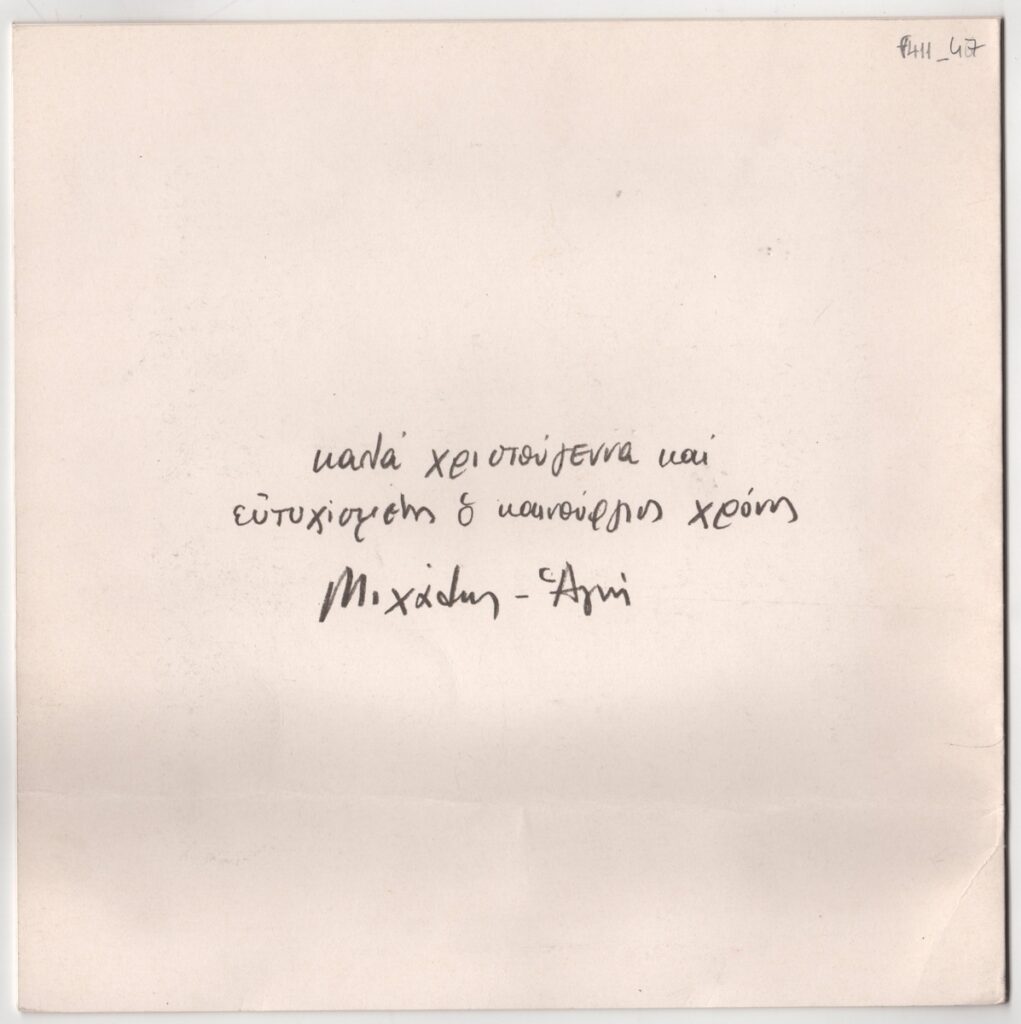 411_47
καλά χριστούγεννα καί
εὐτυχισμένος ὁ καινούργιος χρόνος
Μιχάλης - Ἁγνή